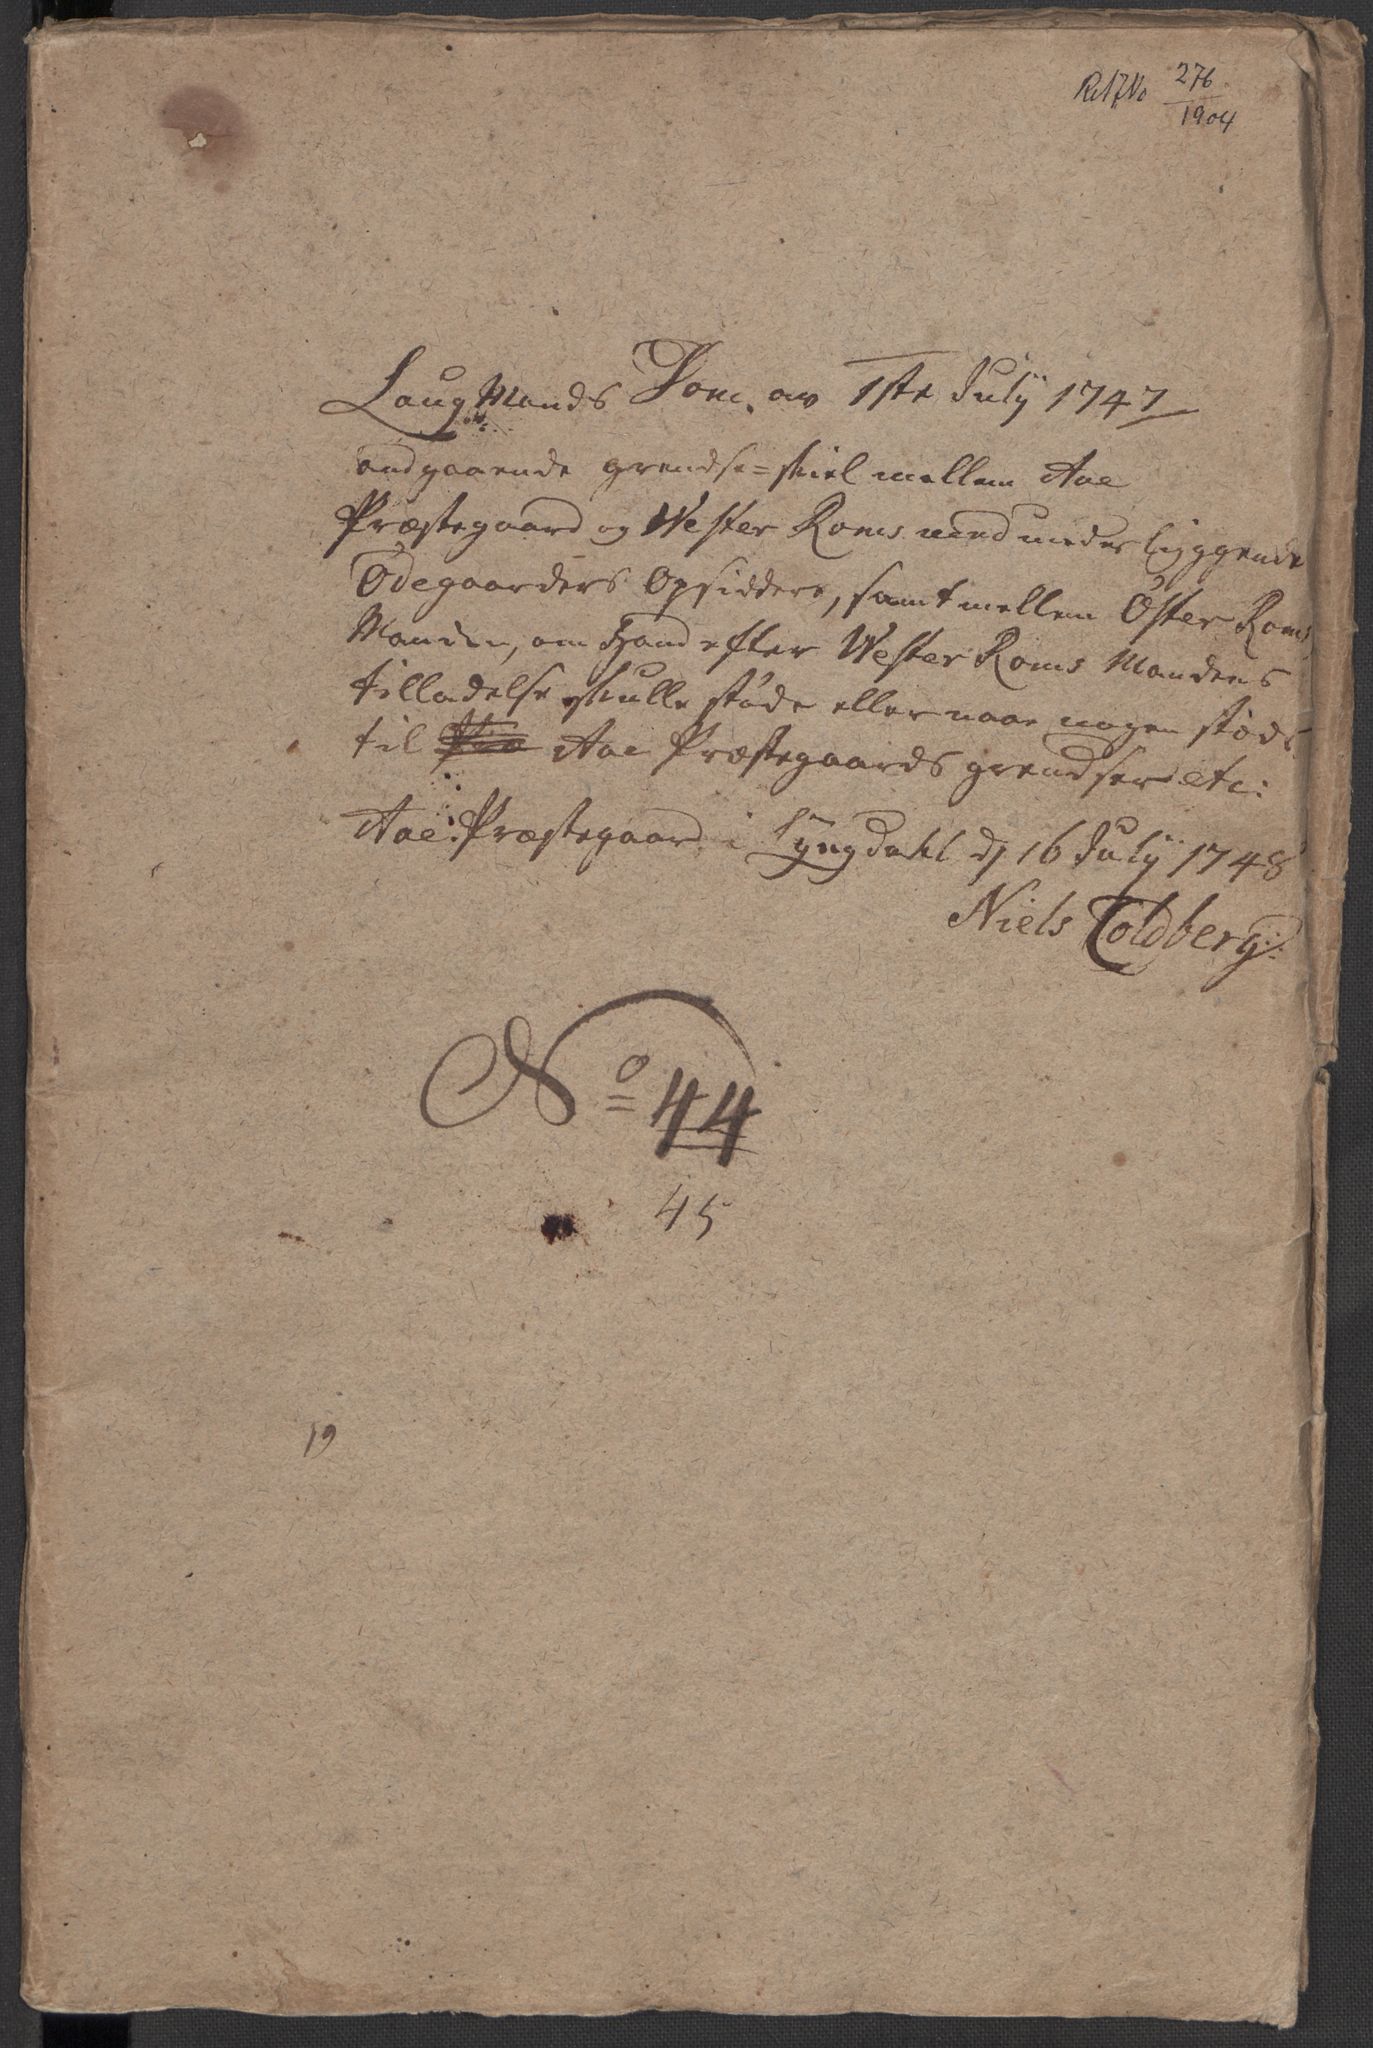 276
1904
Laug Mands Dom, av 1ste July 1747
andgaaende grendse=skiel mellem Aae
Præstegaard og Wester Roms med underliggende
Ødegaarders Opsiddere, samt mellem Öster Roms
Manden, om Hand efter Wester Roms Mandens
tilladelse skulle støde eller naar nogen støde
til Aae Præstegaards grendser etc:
Aae Præstegaard i Lyngdahl d 16 July 1748
Niels Toldberg
No 44
45
19